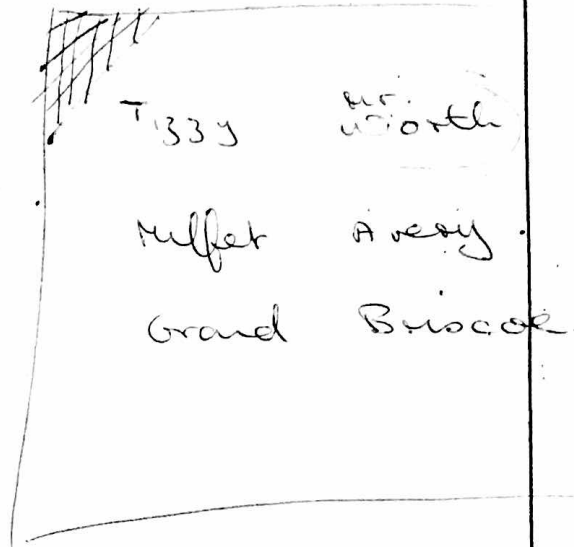 Tizzy Mr.
Worth
Muffet Avery
Grand Briscoe